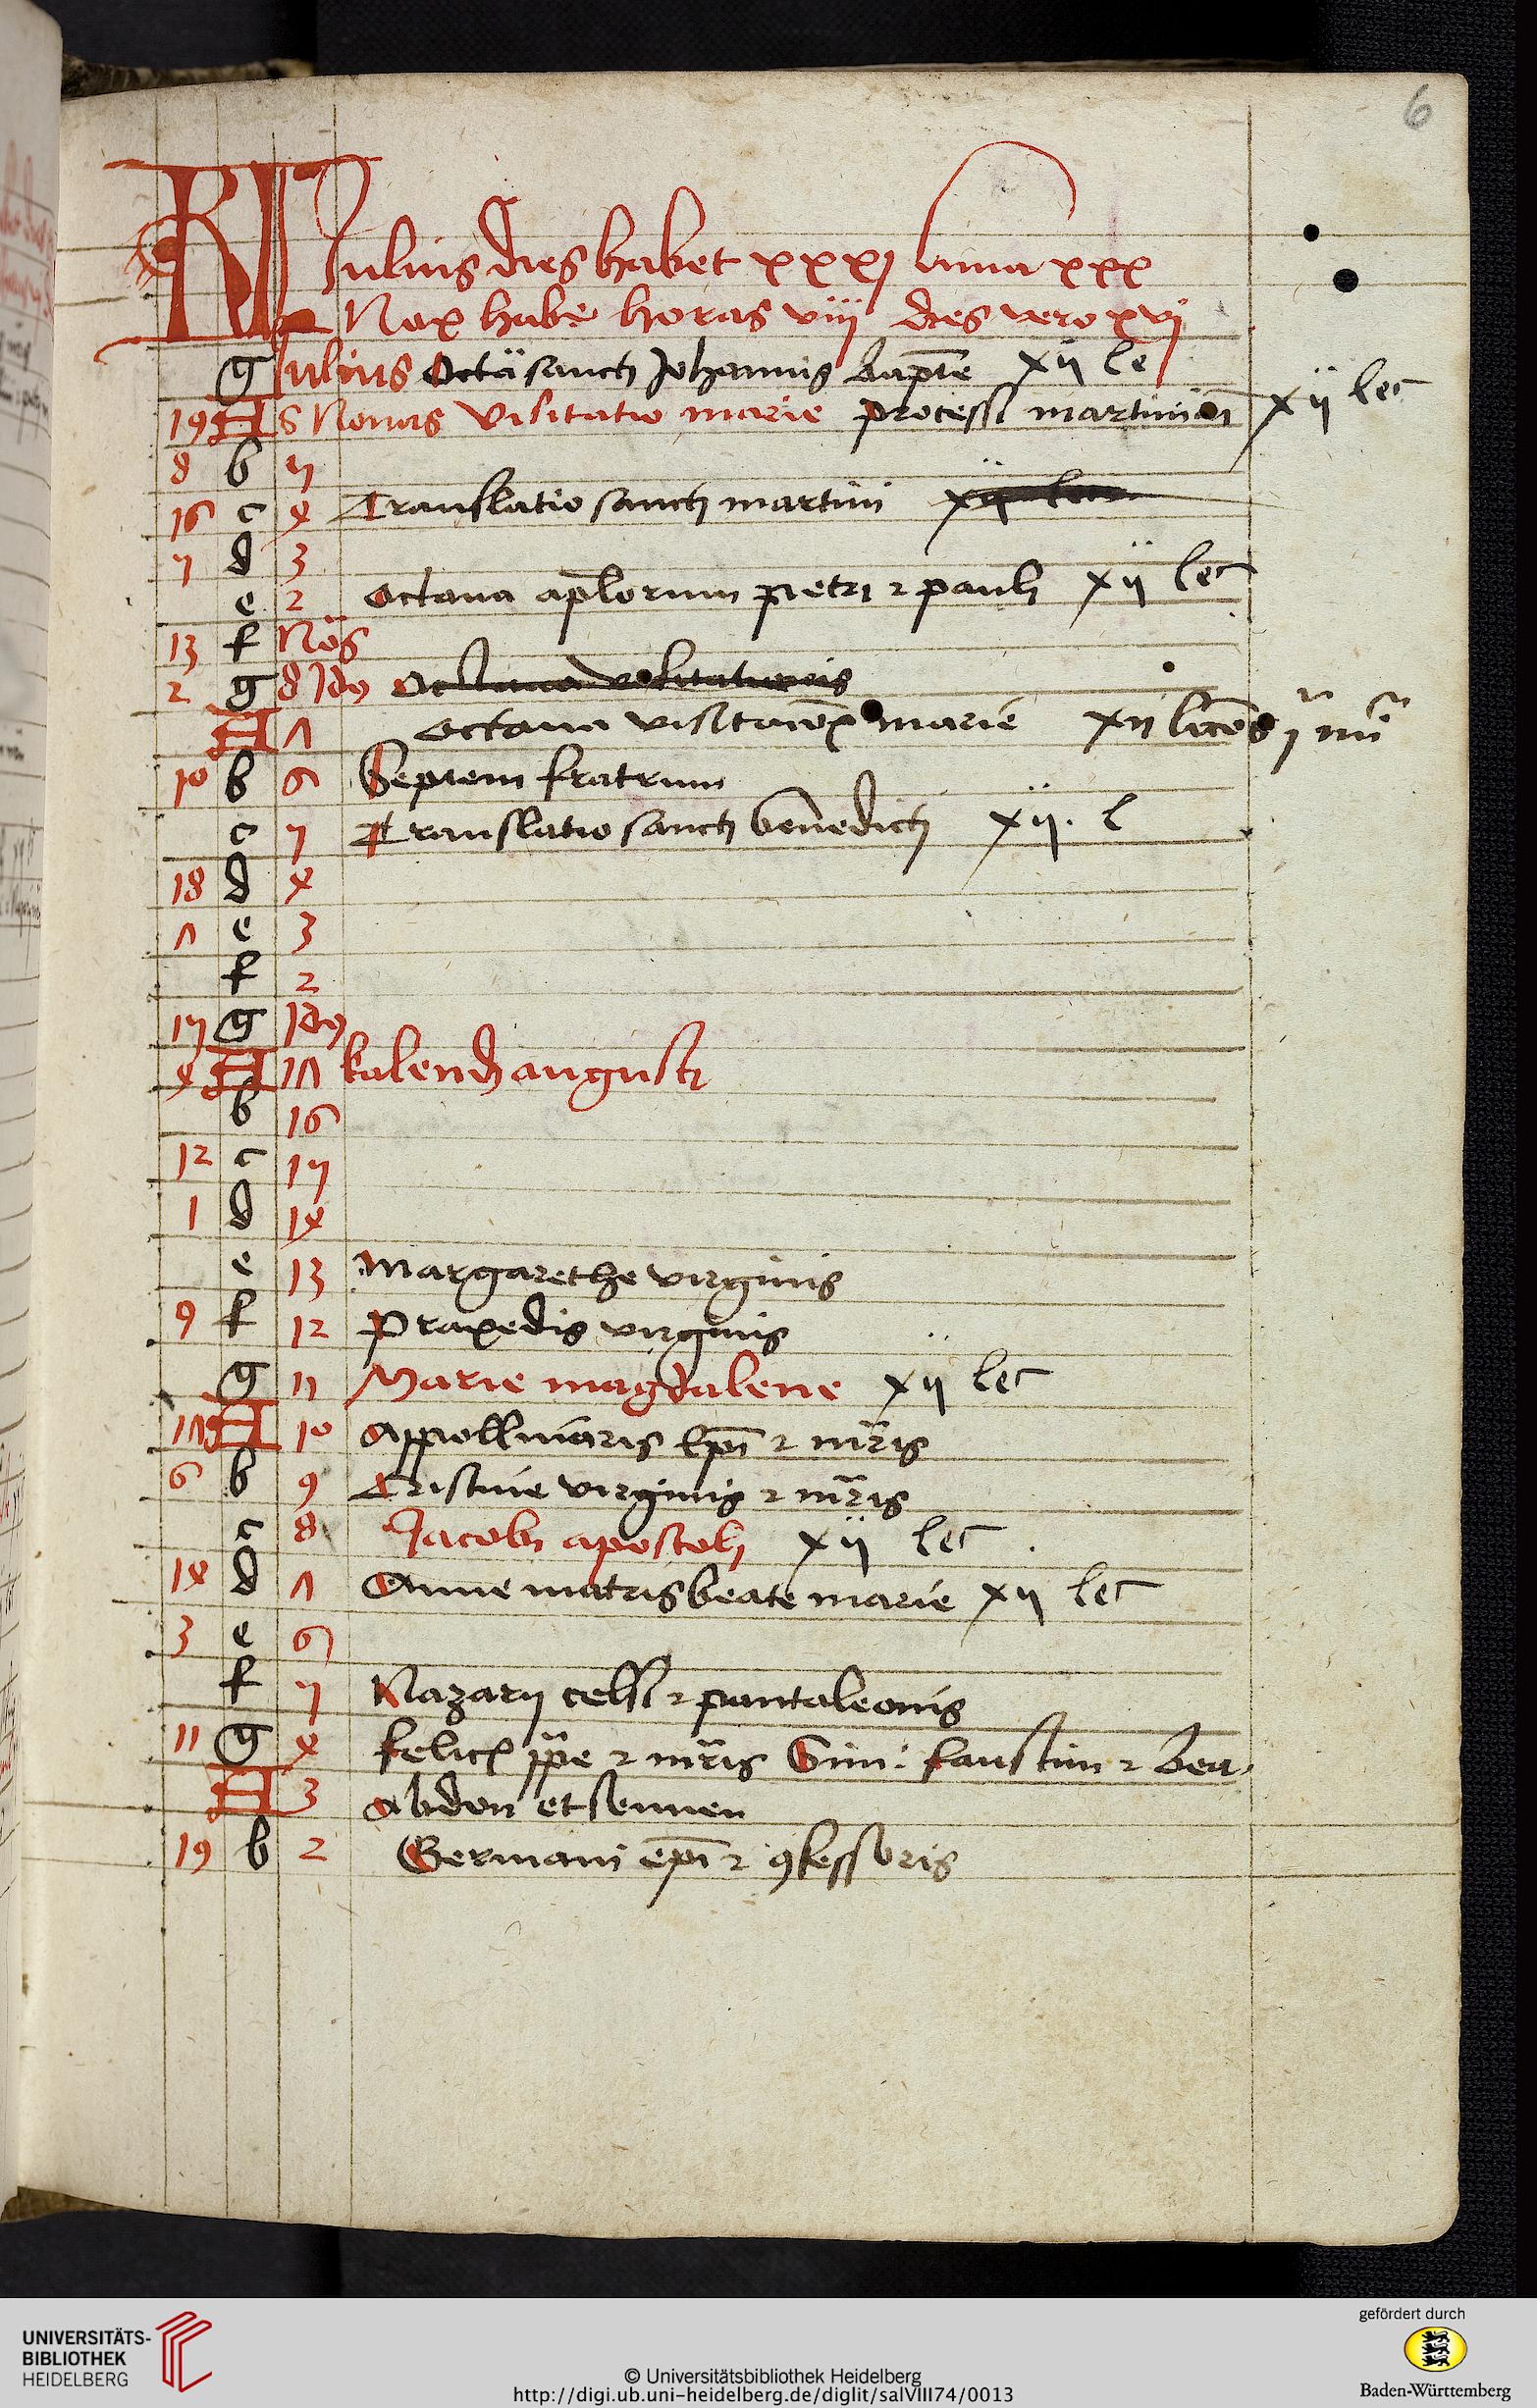 6
KL Julius dies habet xxxj luna xxx
Nox habet horas viij dies vero xvj
g Julius Octa sancti Johannis bapte xij le
19 A 6 Nonas Visitatio marie processi martiniani xij lec
8 b 5
16 c 4 Translatio sancti martini
5 d 3
e 2 Octava aplorum petri 2 pauli xij lec
13 f Nos
2 g 8 Jdus Octava visitationis
A 7 Octava visitacōis marie xij
10 b 6 Septem fratrum
c 5 Translatio sancti benedicti xij. l
18 d 4
7 e 3
f 2
15 g Jdus
4 A 17 kalendas augusti
b 16
12 c 15
1 d 14
e 13 Margarethe virginis
9 f 12 Praxedis virginis
g 11 Marie magdalene xij lec
17 A 10 Appollinaris epi 2 mris
6 b 9 Cristine virginis 2 mris
c 8 Jacobi apostoli xij lec
14 d 7 Anne matris beate marie xij lec
3 e 6
f 5 Nazarij celsi 2 pantaleonis
11 g 4 felicis ppe 2 mris Sim: faustini 2 Bea.
A 3 Abdon et sennen
19 b 2 Germani epi 2 9fessoris
UNIVERSITÄTS-
BIBLIOTHEK
HEIDELBERG
© Universitätsbibliothek Heidelberg
http://digi.ub.uni-heidelberg.de/diglit/salVIII74/0013
gefördert durch
Baden-Württemberg